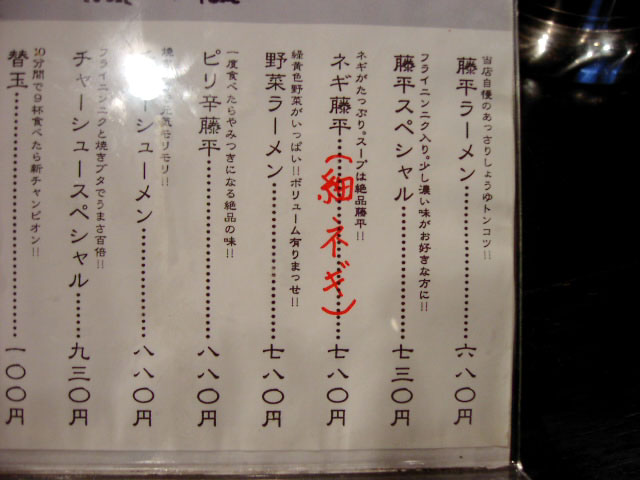 当店自慢のあっさりしょうゆトンコツ!!
藤平ラーメン…………六八〇円
フライニンニク入り。少し濃い味がお好きな方に!!
藤平スペシャル…………七三〇円
ネギがたっぷり。スープは絶品藤平!!
ネギ藤平…………七八〇円
(細ネギ)
緑黄色野菜がいっぱい!!ボリューム有りまっせ!!
野菜ラーメン…………七八〇円
一度食べたらやみつきになる絶品の味!!
ピリ辛藤平…………八八〇円
元気モリモリ!!
シューメン…………八八〇円
フライニンニクと焼きブタでうまさ百倍!!
チャーシュースペシャル……九三〇円
10分間で9杯食べたら新チャンピオン!!
替玉…………一〇〇円